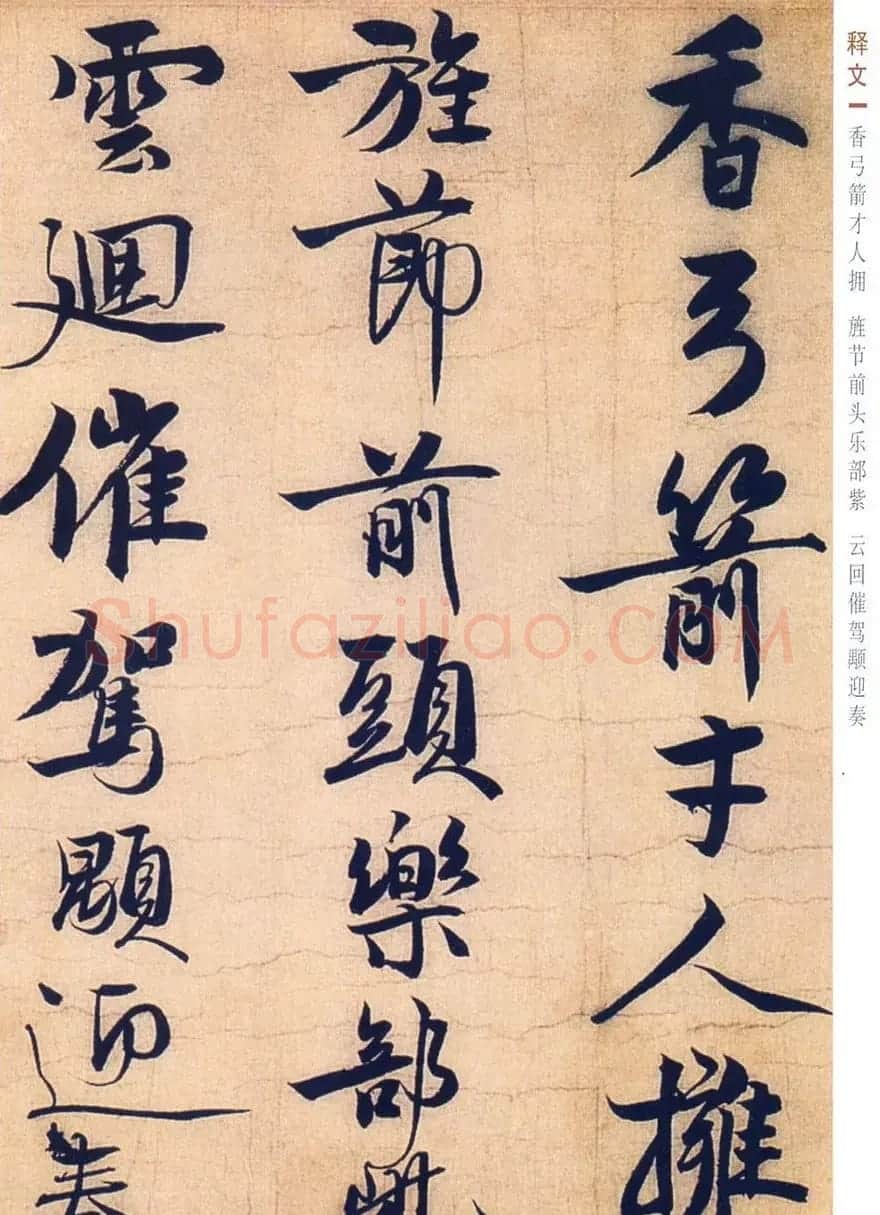 释文一 香弓箭才人拥 旌节前头乐部紫 云回催驾顒迎奏
香弓箭才人擁
旌節前頭樂部紫
雲廻催駕顒迎奏
Shufaziliao.COM